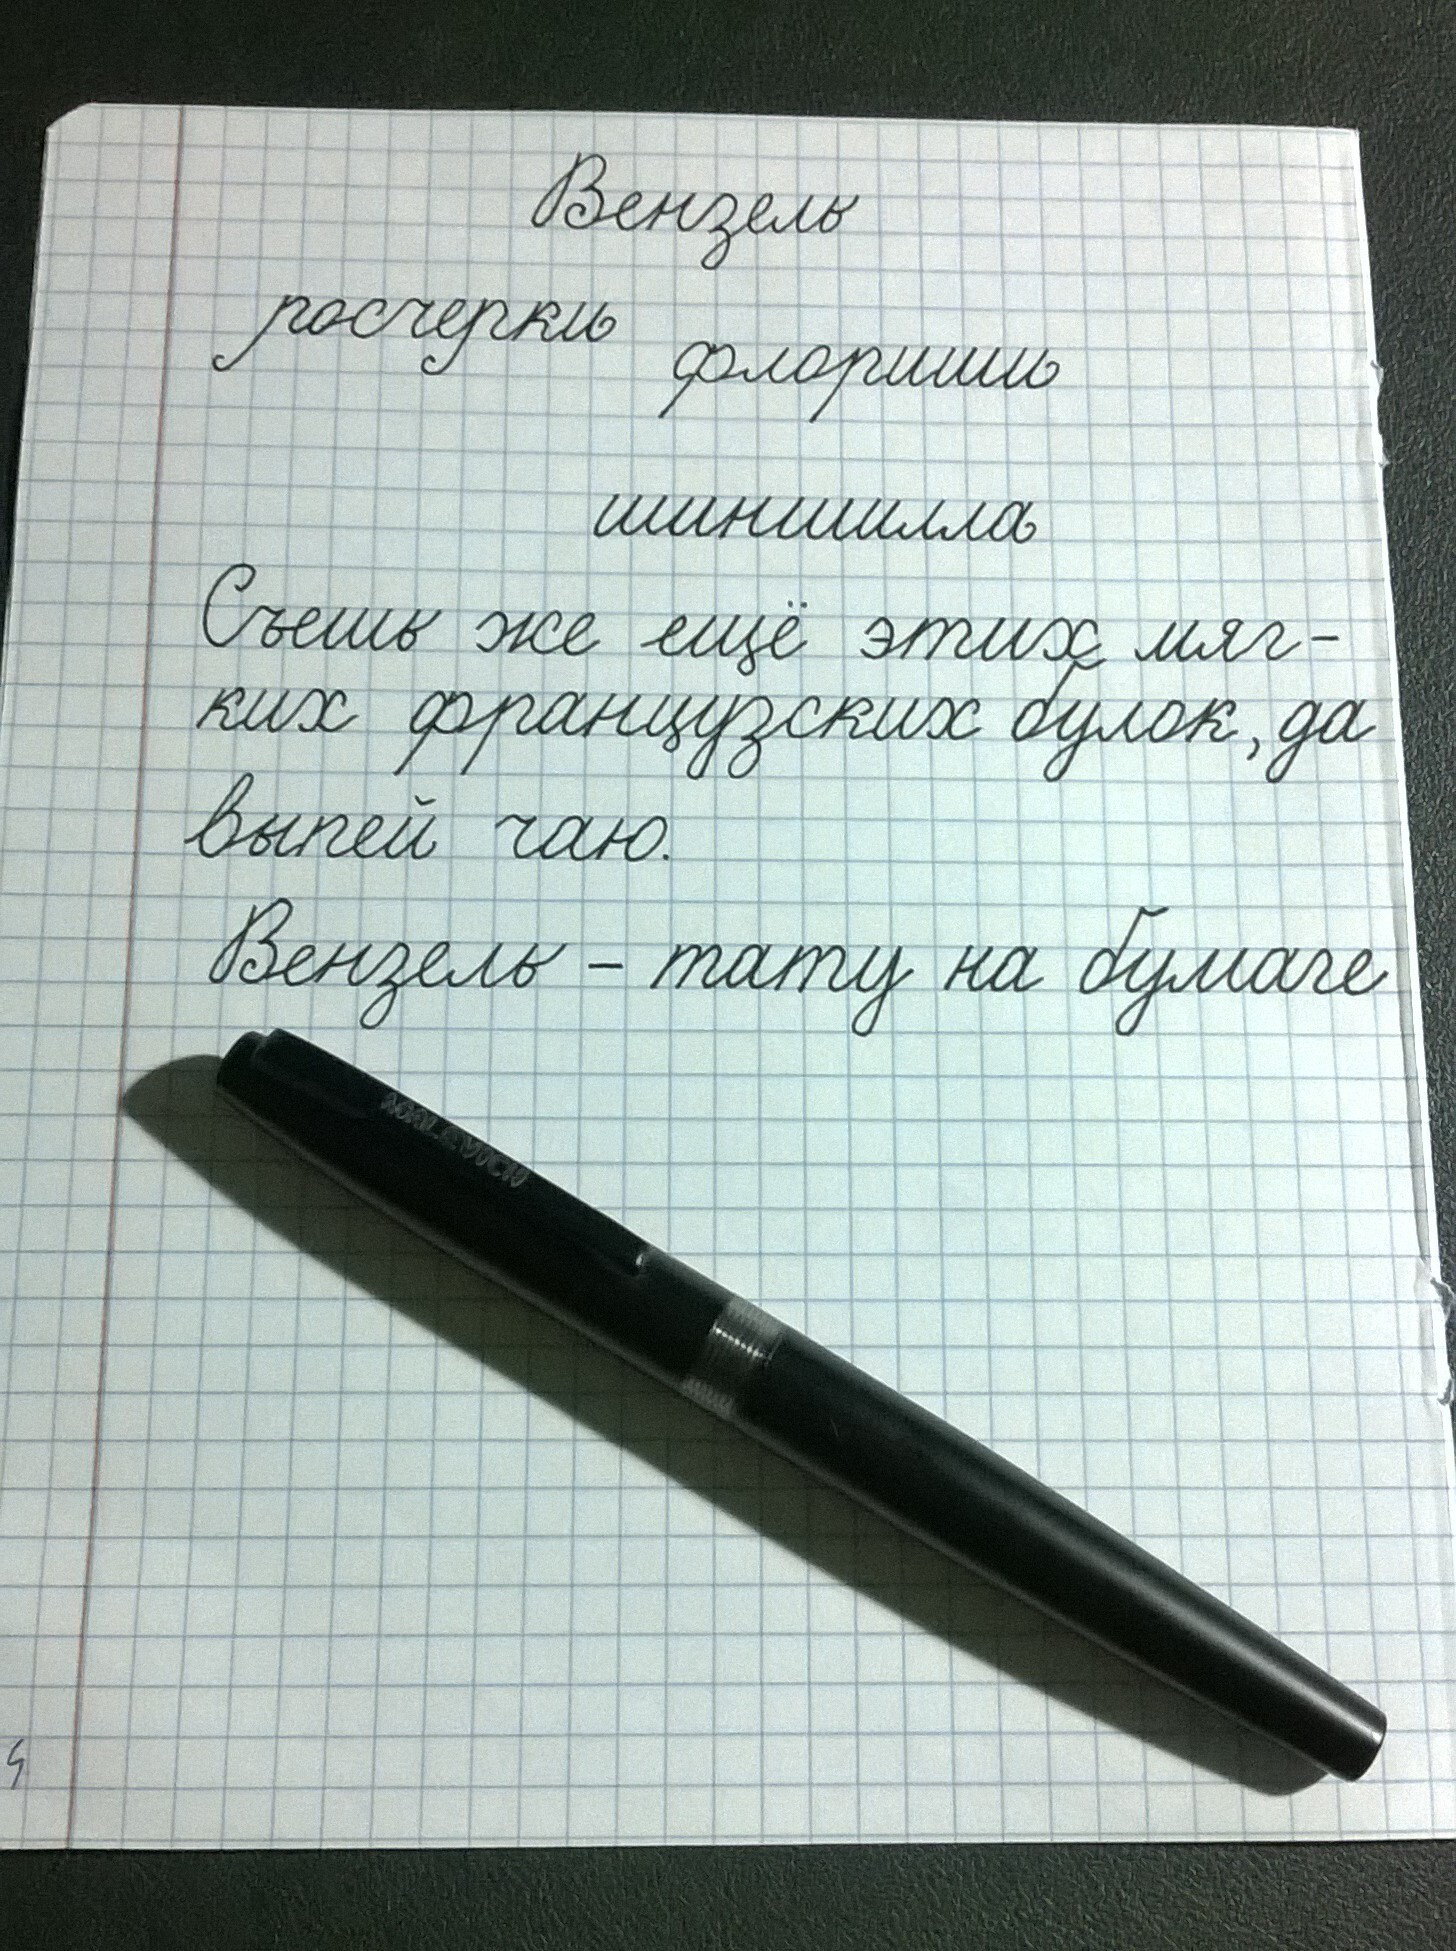 Вензель
росчерки
флориши
шиншилла
Съешь же ещё этих мяг-
ких французских булок, да
выпей чаю.
Вензель – тату на бумаге